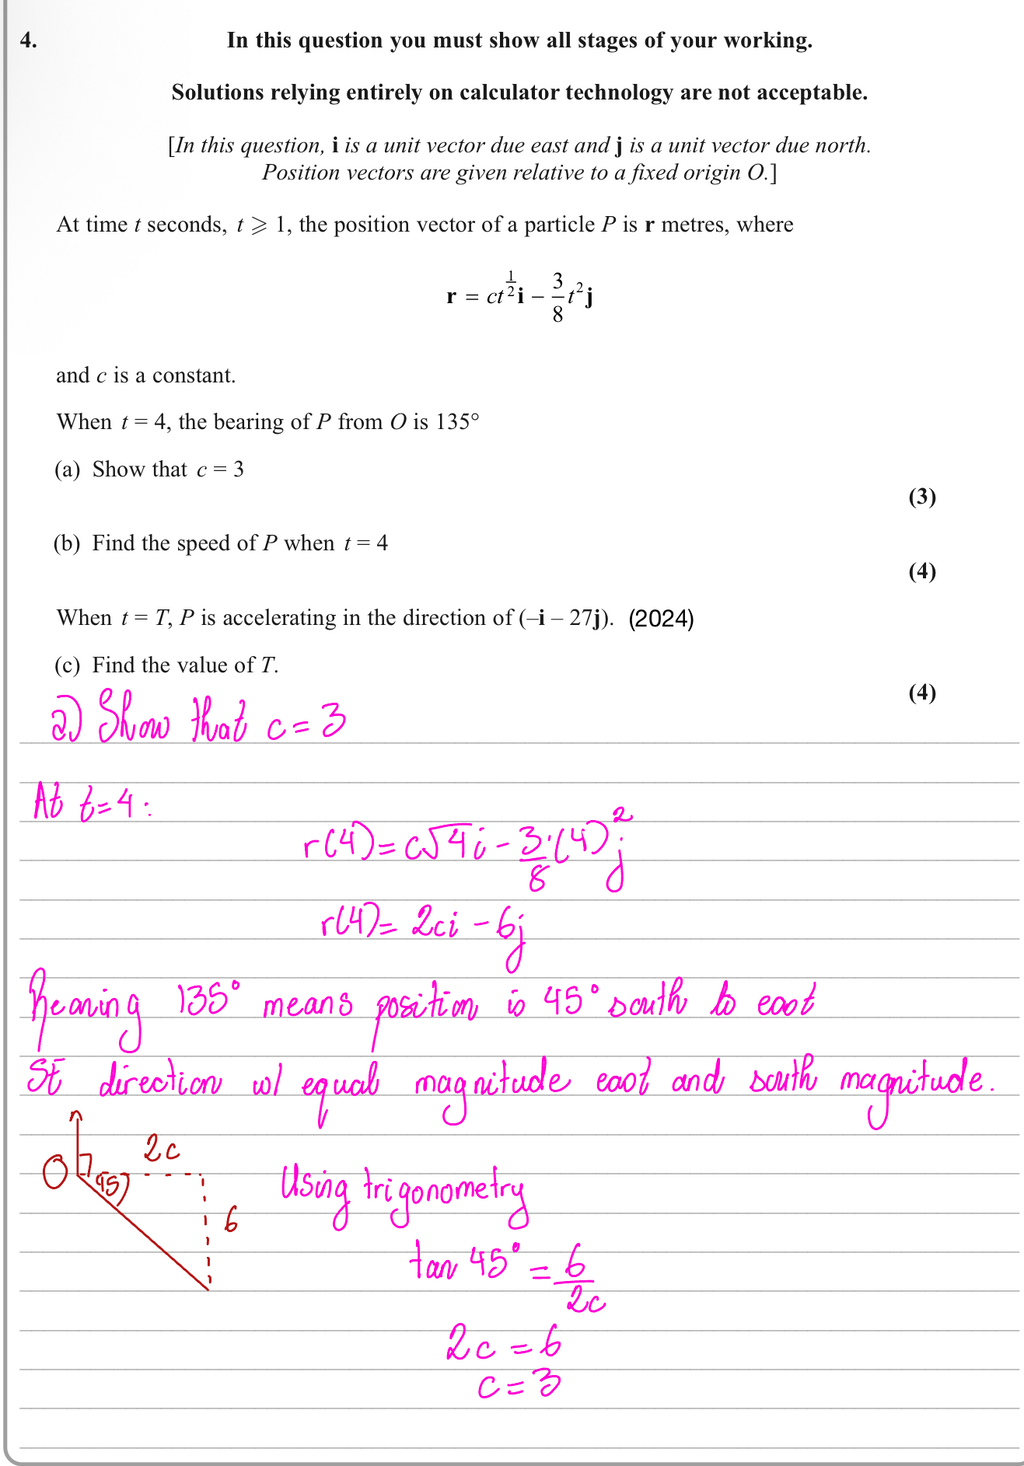 4.
In this question you must show all stages of your working.
Solutions relying entirely on calculator technology are not acceptable.
[In this question, i is a unit vector due east and j is a unit vector due north.
Position vectors are given relative to a fixed origin O.]
At time t seconds, t ⩾ 1, the position vector of a particle P is r metres, where
r = ct^(1/2) i − 3/8 t² j
and c is a constant.
When t = 4, the bearing of P from O is 135°
(a) Show that c = 3
(3)
(b) Find the speed of P when t = 4
(4)
When t = T, P is accelerating in the direction of (–i – 27j). (2024)
(c) Find the value of T.
(4)
a) Show that c = 3
At t=4:
r(4) = c√4i - 3/8·(4)²j
r(4) = 2ci - 6j
Bearing 135° means position is 45° south to east
SE direction w/ equal magnitude east and south magnitude.
2c
O 45
6
Using trigonometry
tan 45° = 6/2c
2c = 6
c = 3